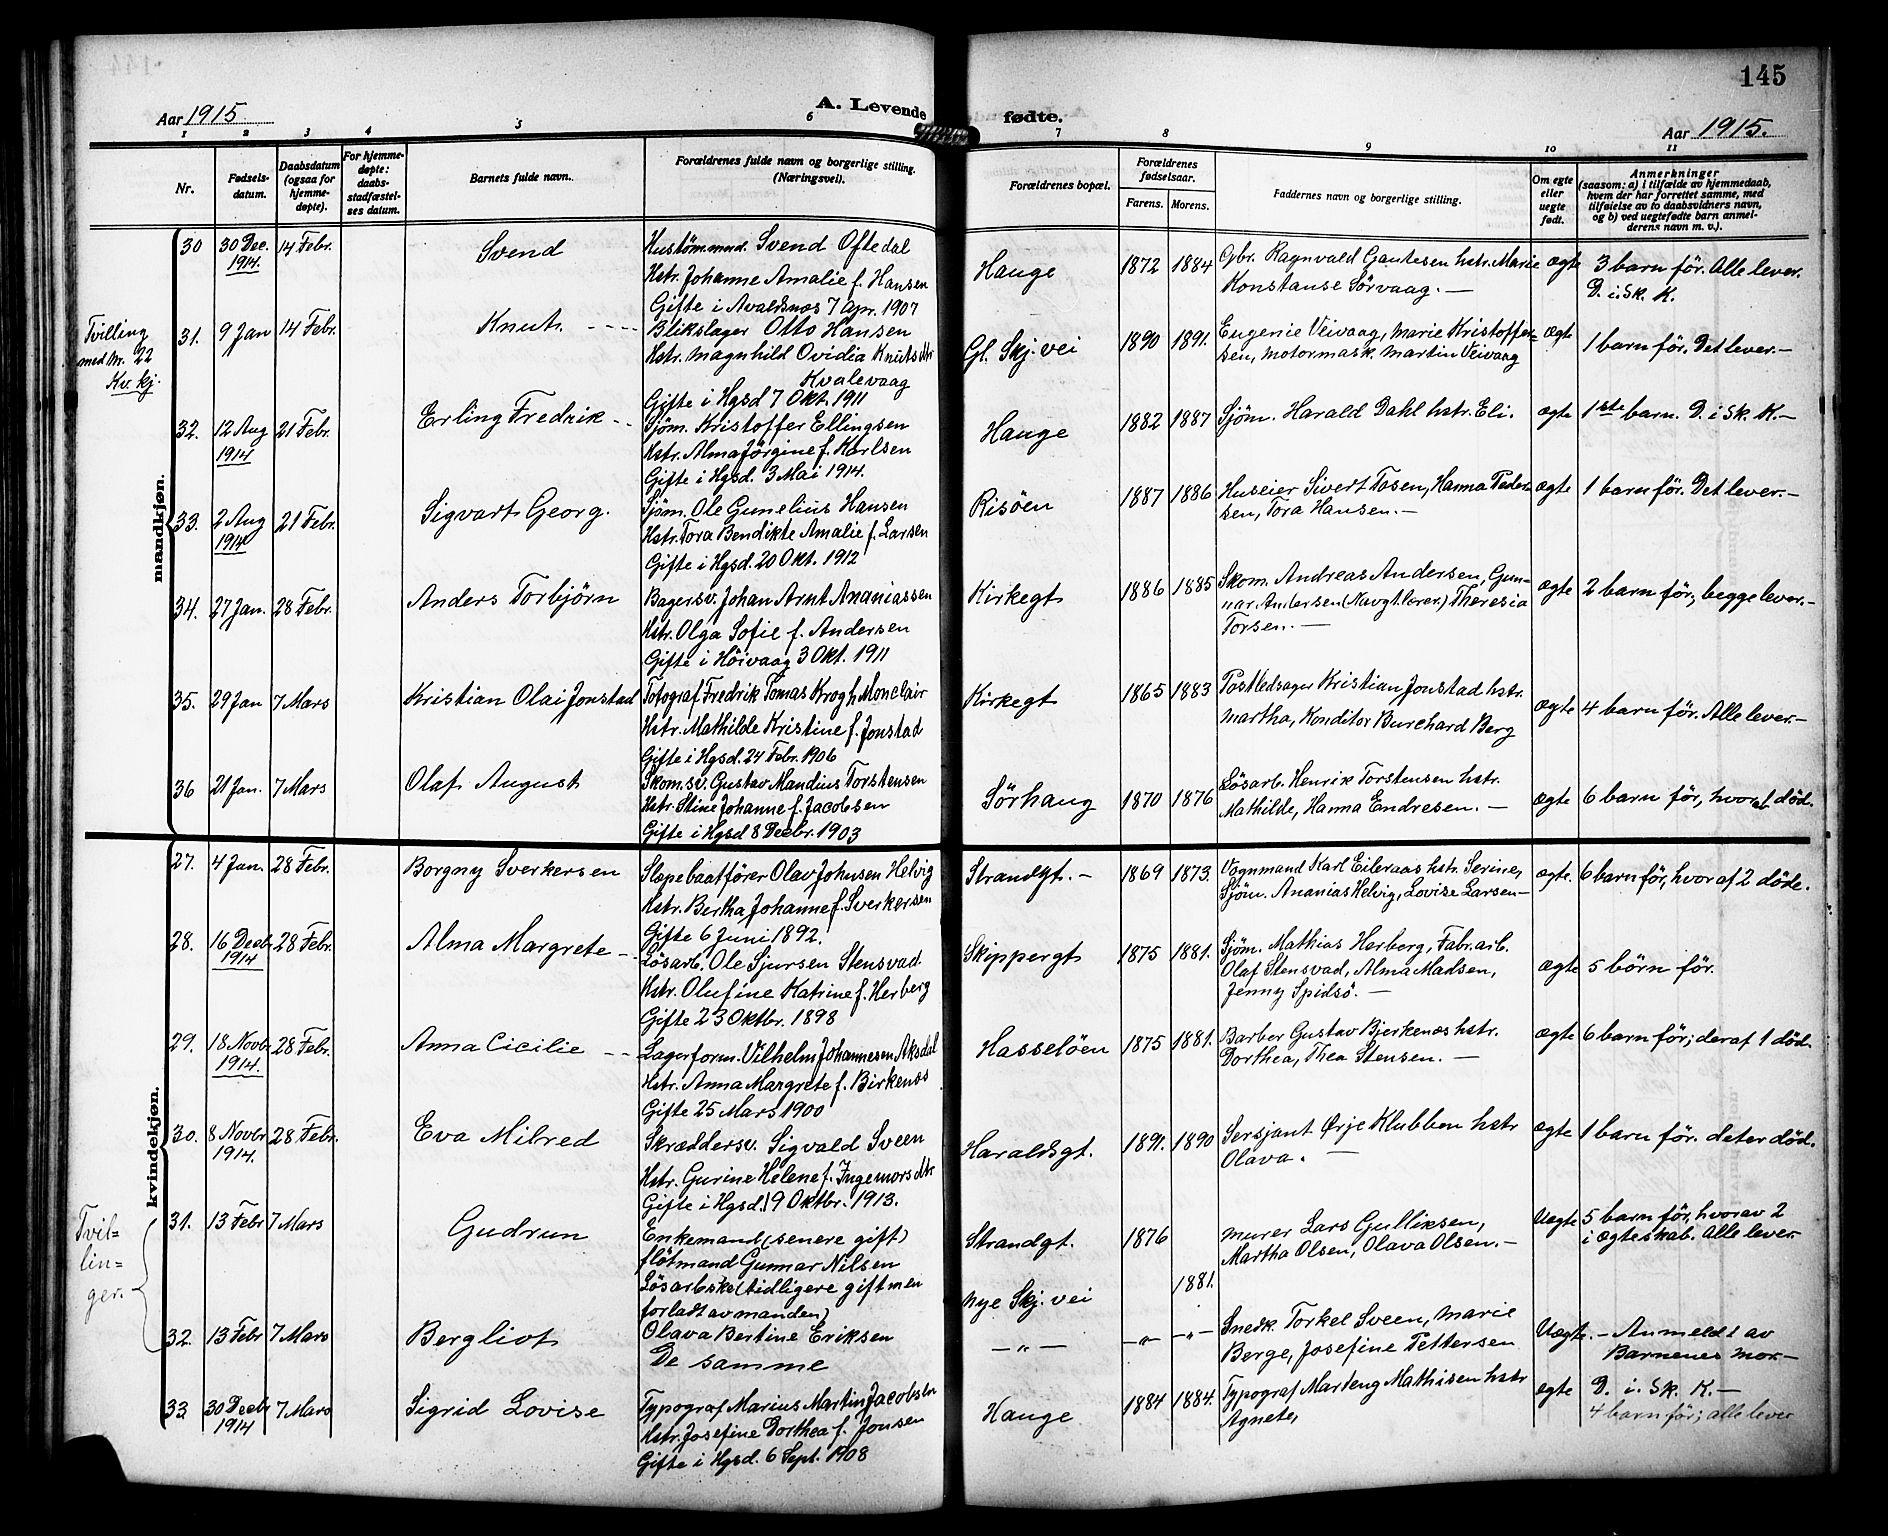 145
Aar 1915
A. Levende fødte.
Aar 1915.
1 2 3 4 5 6 7 8 9 10 11
Nr.
Fødsels-
datum.
Daabsdatum
(ogsaa for
hjemme-
døpte).
For hjemme-
døpte:
daabs-
stadfæstel-
ses datum.
Barnets fulde navn.
Forældrenes fulde navn og borgerlige stilling.
(Næringsvei).
Forældrenes bopæl.
Forældrenes
fødselsaar.
Farens. Morens.
Faddernes navn og borgerlige stilling.
Om egte
eller
uegte
født.
Anmerkninger
(saasom: a) i tilfælde av hjemmedaab,
hvem der har forrettet samme, med
tilføielse av to daabsvidners navn,
og b) ved uegtefødte barn anmel-
derens navn m. v.).
mandkjøn.
30 30 Dec. 14 Febr. Svend
1914.
Hustømmerm. Svend Oftedal
Hstr. Johanne Amalie f. Hansen
Gifte i Avaldsnes 7 Apr. 1907
Hauge 1872 1884
Gbr. Ragnvald Gautesen hstr. Marie
Konstanse Sörvaag. —
ægte 3 barn för. Alle lever.
D. i. Sk. K.
Tvilling
med nr. 22
Kv. kj.
31. 9 Jan 14 Febr. Knut
Blikslager Otto Hansen
Hstr. Magnhild Ovidia Knutsdtr
Kvalevaag
Gifte i Hgsd 7 Okt. 1911
Gl. Skj. vei 1890 1891.
Eugenie Veivaag, Marie Kristoffer-
sen, motormask. Martin Veivaag
ægte 1 barn för. Det lever.—
32. 12 Aug 21 Febr. Erling Fredrik
1914
Sjöm. Kristoffer Ellingsen
Hstr. Alma Jörgine f. Karlsen
Gifte i Hgsd. 3 Mai 1914.
Hauge 1882 1887
Sjöm. Harald Dahl hstr. Eli.
ægte 1ste barn. D. i Sk. K.—
33. 2 Aug 21 Febr. Sigvart Georg.
1914
Sjöm. Ole Gunelius Hansen
Hstr. Tora Bendikte Amalie f. Larsen
Gifte i Hgsd. 20 Okt. 1912
Risöen 1887 1886
Huseier Sivert Tosen, Hanna Peder-
sen, Tora Hansen. —
ægte 1 barn för. Det lever.—
34. 27 Jan. 28 Febr. Anders Torbjörn
Bagersv. Johan Arnt Ananiassen
Hstr. Olga Sofie f. Andersen
Gifte i Höivaag 3 Okt. 1911
Kirkegt 1886 1885
Skom. Andreas Andersen, Gun-
nar Andersen (Navgt. lærer.) Theresia
Torsen. —
ægte 2 barn för, begge lever.—
35. 29 Jan 7 Mars Kristian Olai Jonstad
Fotograf Fredrik Tomas Krogh Monclair
Hstr. Mathilde Kristine f. Jonstad
Gifte i Hgsd. 24 Febr. 1906
Kirkegt 1865 1883
Postledsager Kristian Jonstad hstr.
Martha, Konditor Burchard Berg
ægte 4 barn för. Alle lever.—
36 21 Jan. 7 Mars Olaf August
Skom. sv. Gustav Mandius Torstensen
Hstr. Stine Johanne f. Jacobsen
Gifte i Hgsd 8 Decbr. 1903
Sörhaug 1870 1876
Lösarb. Henrik Torstensen hstr.
Mathilde, Hanna Endresen. —
ægte 6 barn för, hvoraf död.
kvindekjøn.
27. 4 Jan. 28 Febr. Borgny Sverkersen
Slæpebaatförer Olav Johnsen Helvig
Hstr. Bertha Johanne f. Sverkersen
Gifte 6 Juni 1892.
Strandgt. — 1869 1873.
Vognmand Karl Eileraas hstr. Serine,
Sjöm. Ananias Helvig, Lovise Larsen—
ægte. 6 barn för, hvoraf 2 döde.
28. 16 Decbr 28 Febr. Alma Margrete
1914
Lösarb. Ole Sjursen Stensvad
Hstr. Olufine Katrine f. Herberg
Gifte 23 Oktbr. 1898
Skippergt 1875 1881.
Sjöm. Mathias Herberg, Fabr. arb.
Olaf Stensvad, Alma Madsen,
Jenny Spidsö. —
ægte 5 börn för.
29. 18 Novbr 28 Febr. Anna Cicilie
1914.
Lagerform. Vilhelm Johannesen Aksdal
Hstr. Anna Margrete f. Birkenæs
Gifte 25 Mars 1900
Hasselöen 1875 1881.
Barber Gustav Bjerkenæs hstr.
Dorthea, Thea Stensen. —
ægte 6 barn för; deraf 1 död.
30. 8 Novbr 28 Febr. Eva Milred
1914.
Skræddersv. Sigvald Sveen
Hstr. Gurine Helene f. Ingemorsdtr
Gifte i Hgsd. 19 Oktbr. 1913.
Haraldsgt. 1891. 1890
Sersjant Ørje Klubben hstr
Olava. —
ægte 1 barn för. det er död.
Tvil-
lin-
ger.
31. 13 Febr 7 Mars Gudrun
Enkemand (senere gift)
flötmand Gunnar Nilsen
Lösarbske (tidligere gift men
forladt av manden)
Olava Bertine Eriksen
Strandgt. 1876
Nye Skj. vei 1881.
Murer Lars Gulliksen,
Martha Olsen, Olava Olsen. —
Uegte 5 barn för, hvorav 2
i ægteskab. Alle lever.
32. 13 Febr 7 Mars Bergliot
De samme
— „ — — „ — — „ —
Snedk. Torkel Sveen, Marie
Berge, Josefine Pettersen
Uægte. — Anmeldt av
Barnenes mor.—
33 30 Decbr 7 Mars Sigrid Lovise
1914
Typograf Marius Martin Jacobsen
Hstr. Josefine Dorthea f. Jonsen
Gifte i Hgsd. 6 Sept. 1908
Hauge 1884 1884.
Typograf Marteng Mathisen hstr
Agnete,
ægte D. i. Sk. K.—
4 barn för; alle lever